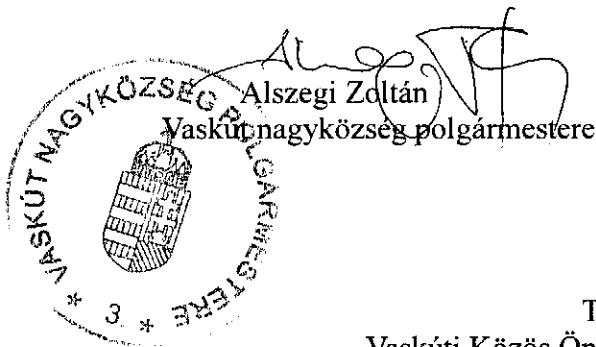 Alszegi Zoltán
Vaskút nagyközség polgármestere
VASKÚT NAGYKÖZSÉG POLGÁRMESTERE
* 3. *
T
Vaskúti Közös Ön